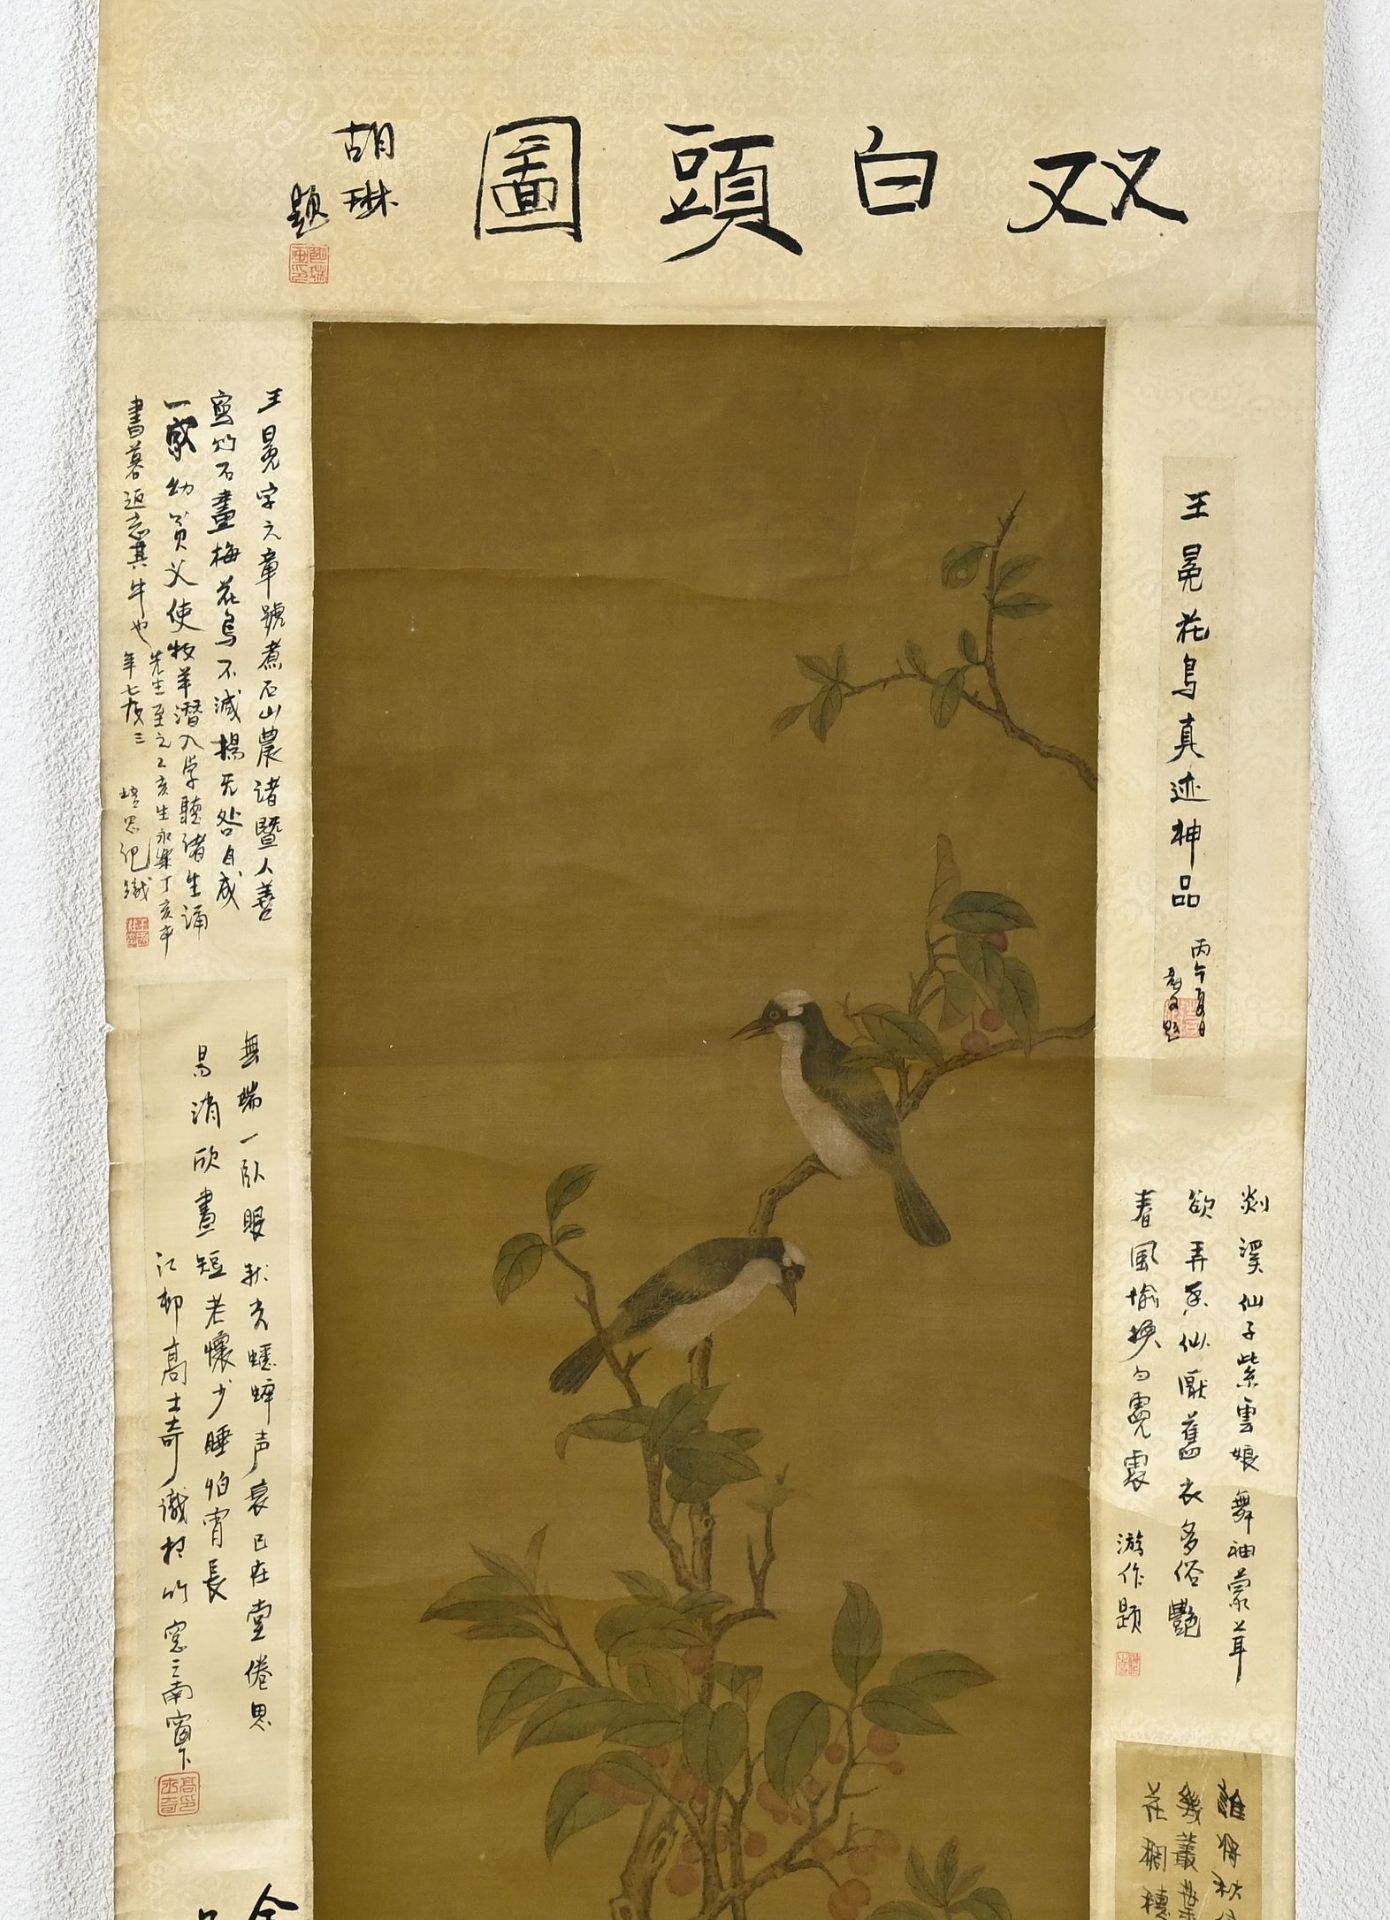 双白頭圖
胡琳
题
王冕花鳥真迹神品
丙午夏日
题
剡溪仙子紫雲娘舞袖蒙茸
欲弄仙厭舊衣多俗艷
春風愉换霓裳
游作题
誰將秋
幾叢
花穂
王冕字元章號煮石山農诸暨人善
寫竹石畫梅花鳥不减楊无咎自成
一家幼贫父使牧羊潛入学聽诸生誦
書暮返忘其牛也
先生至元乙亥生永樂丁亥卒
年七十三
識
無端一臥眼秋蟋蟀声哀已在堂倦思
易消欣晝短老懷少睡怕宵長
江邨高士奇識於竹窓之南窗下
高士奇印